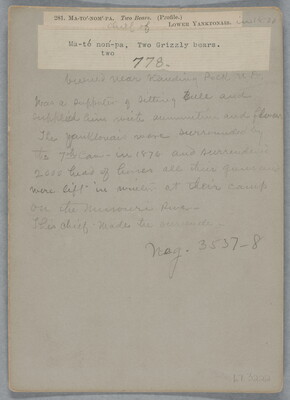 281. MA-TÓ-NON´-PA. Two Bears. (Profile.)
Chief of LOWER YANKTONAIS.
Ma-tó non-pa, Two Grizzly bears.
two
778.
near Standing Rock
Was a supporter of Sitting Bull and
supplied him with ammunition and
The were surrounded by
the 7th Cav. in 1876 and surrendered
2000 head of horses all their
were left in at their camp
on the Missouri River
This chief made no
Neg. 3537-8